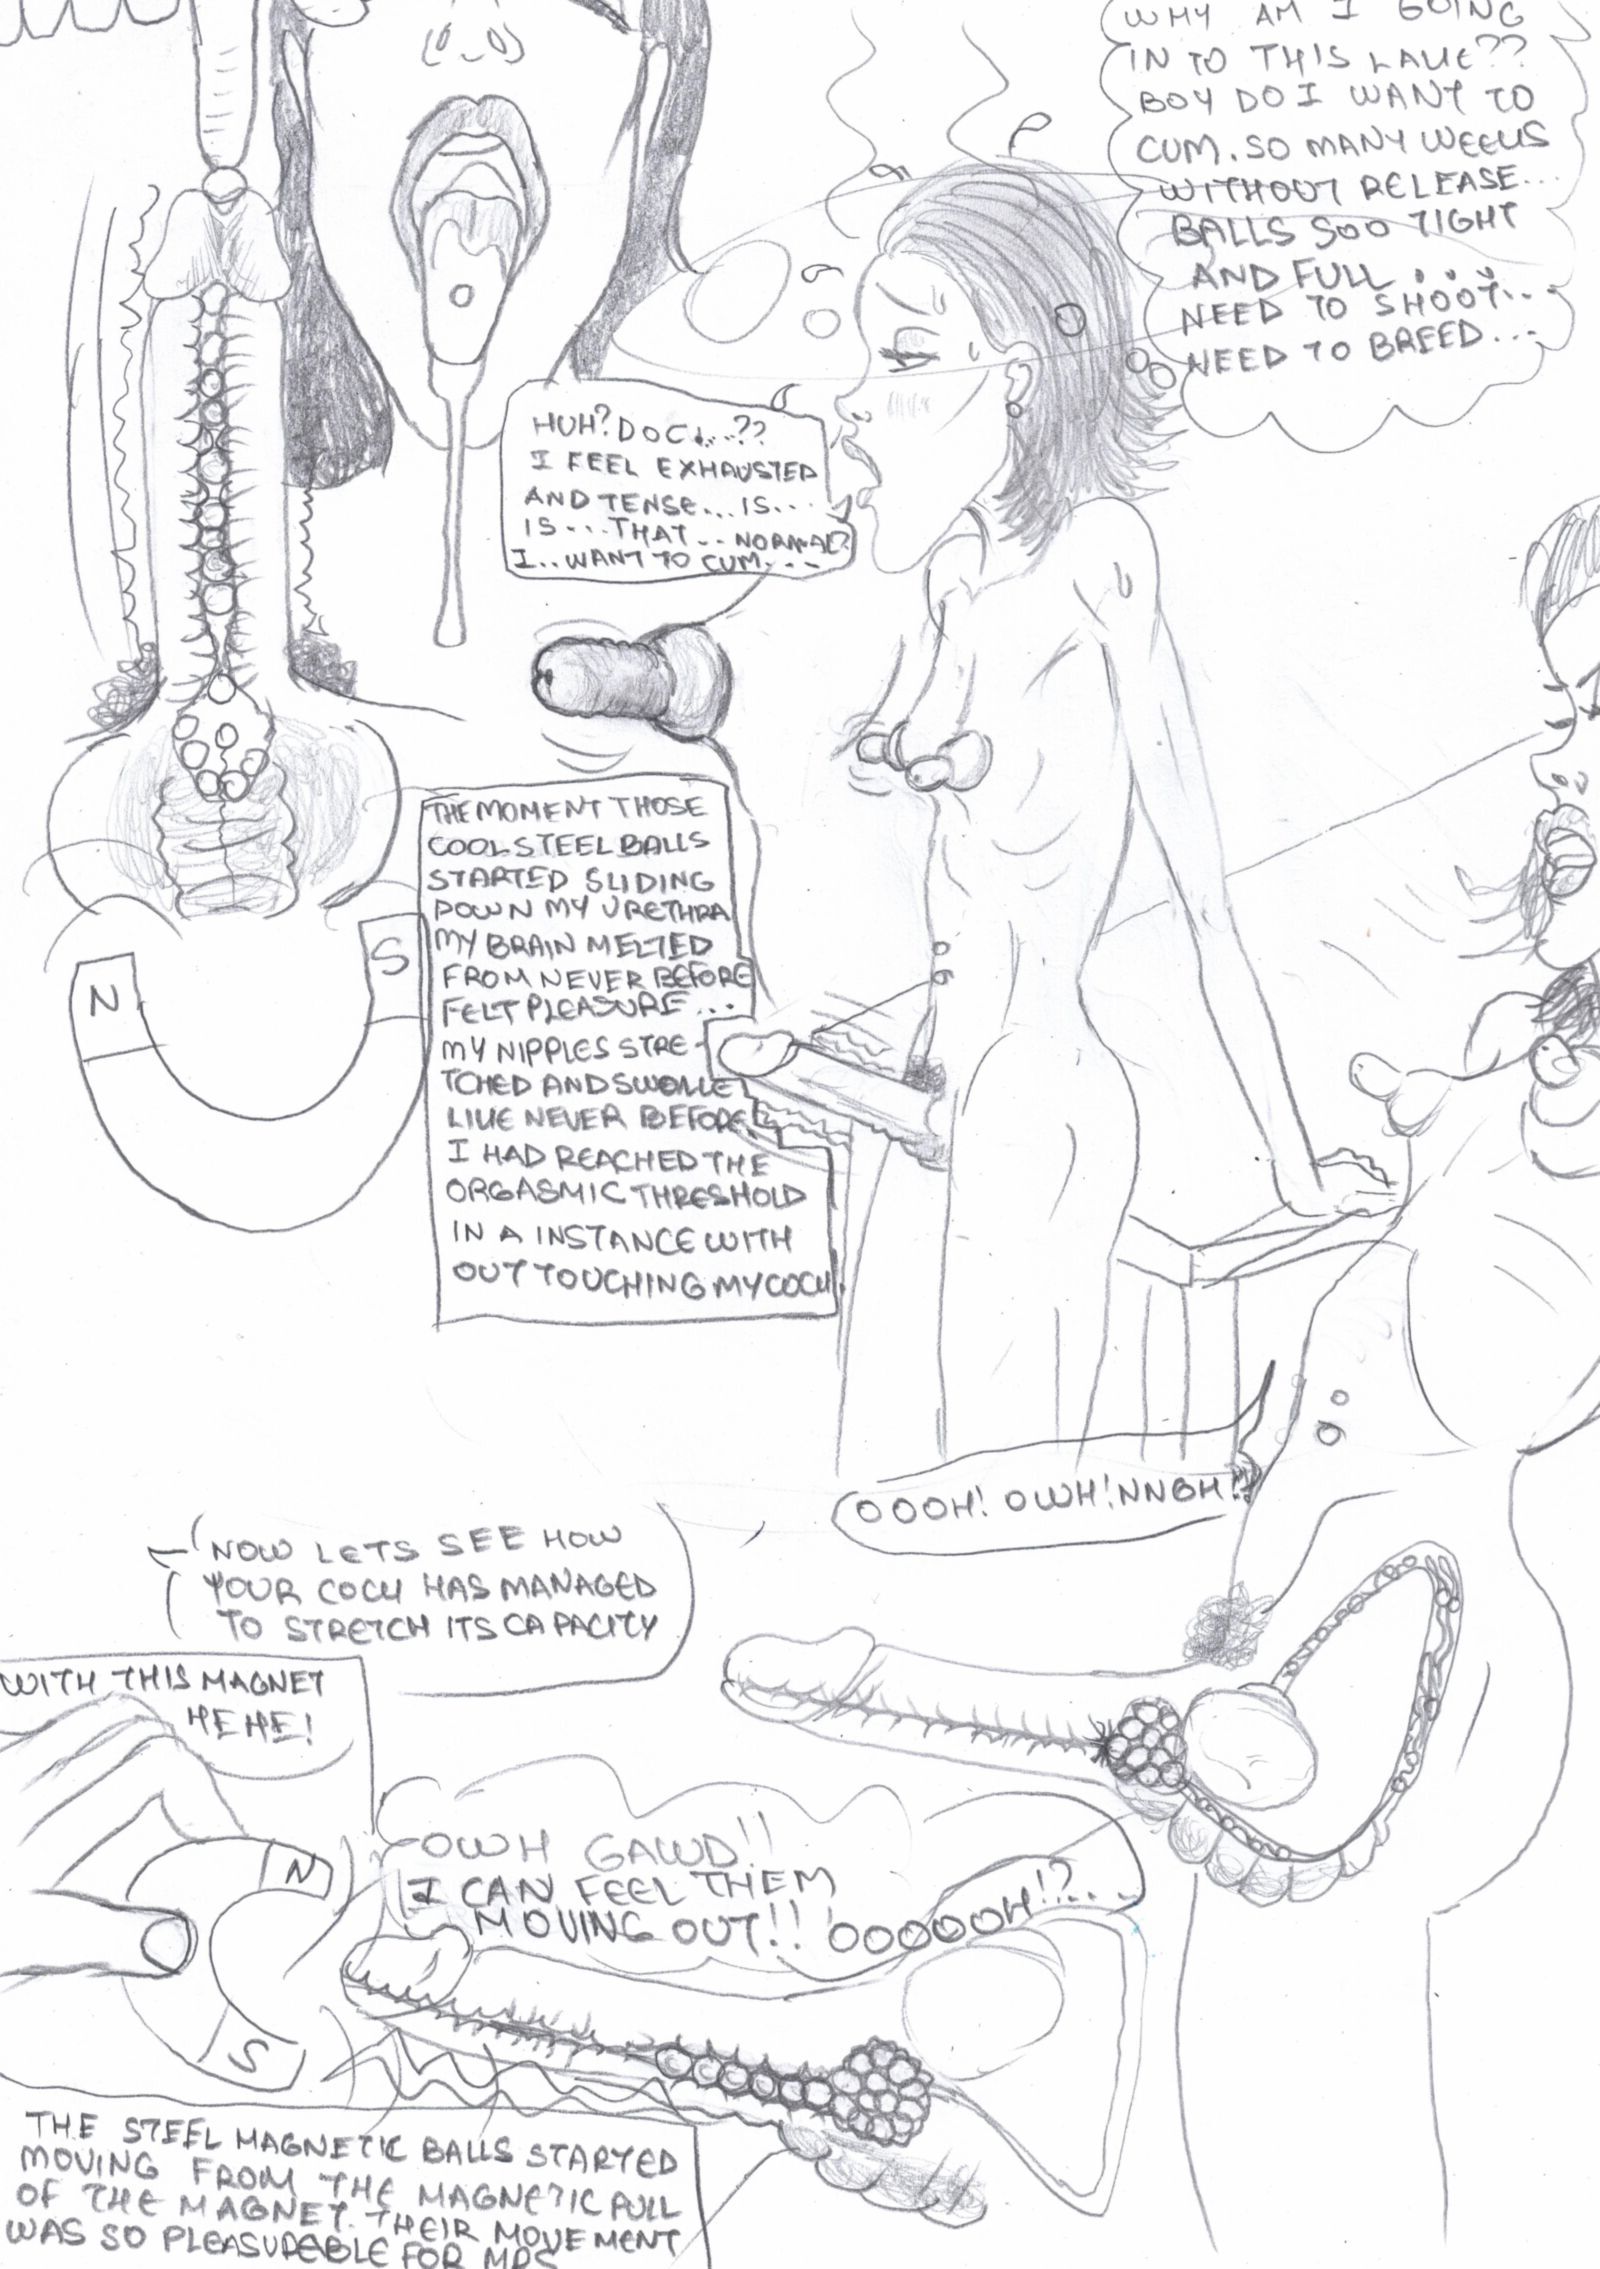 WHY AM I GOING
IN TO THIS LAUE??
BOY DO I WANT TO
CUM. SO MANY WEEUS
WITHOUT RELEASE...
BALLS SOO TIGHT
AND FULL...
NEED TO SHOOT...
NEED TO BREED...
HUH? DOC...??
I FEEL EXHAUSTED
AND TENSE... IS...
IS... THAT.. NORMAL?
I.. WANT TO CUM...
THE MOMENT THOSE
COOL STEEL BALLS
STARTED SLIDING
DOWN MY URETHRA
MY BRAIN MELTED
FROM NEVER BEFORE
FELT PLEASURE...
MY NIPPLES STRE-
TCHED AND SWOLLE
LIUE NEVER BEFORE
I HAD REACHED THE
ORGASMIC THRESHOLD
IN A INSTANCE WITH
OUT TOUCHING MY COCU.
N
S
OOOH! OWH! NNGH!?
NOW LETS SEE HOW
YOUR COCU HAS MANAGED
TO STRETCH ITS CAPACITY
WITH THIS MAGNET
HEHE!
N
S
OWH GAWD!!
I CAN FEEL THEM
MOVING OUT!! OOOOOOH!?...
THE STEEL MAGNETIC BALLS STARTED
MOVING FROM THE MAGNETIC PULL
OF THE MAGNET. THEIR MOVEMENT
WAS SO PLEASUREABLE FOR MRS